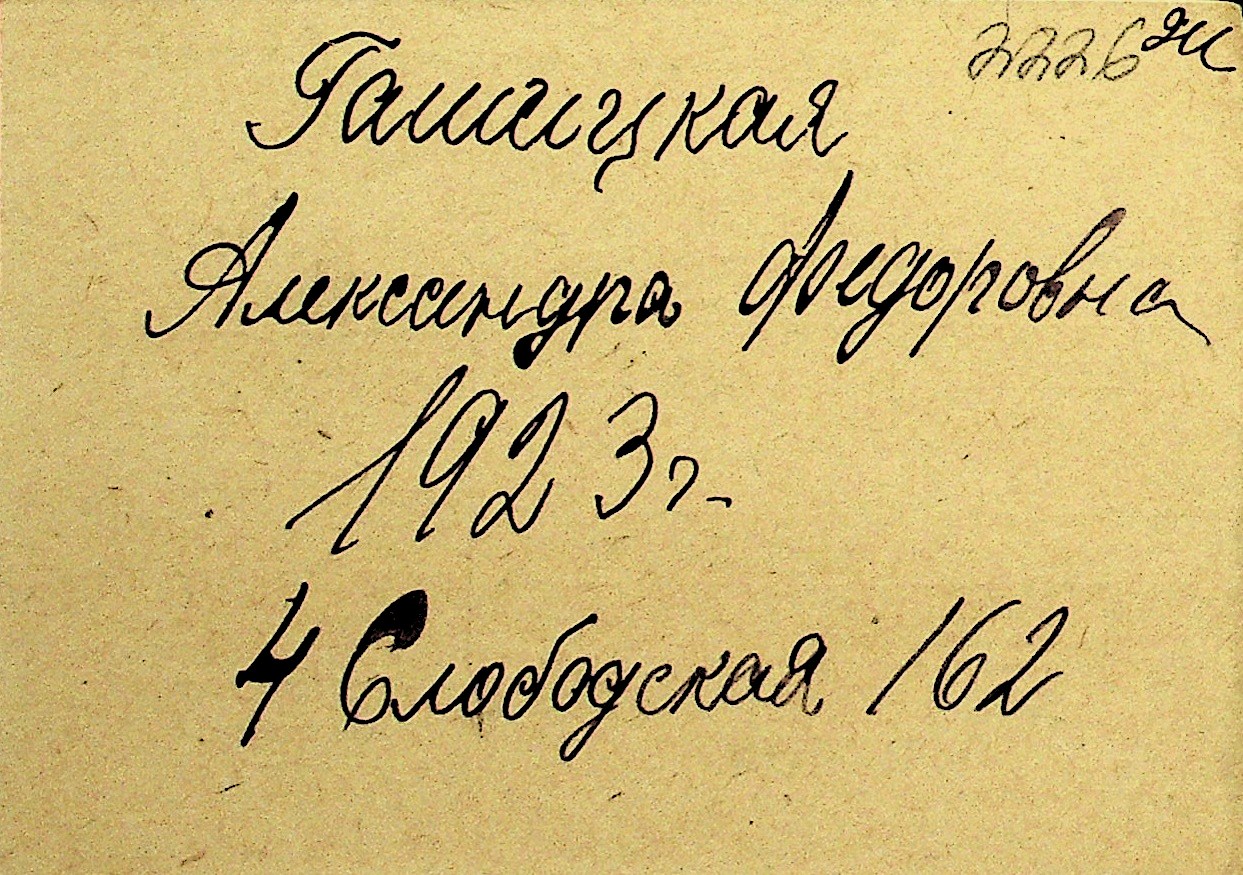 2226
Гашицкая
Александра Федоровна
1923 г.
4 Слободская 162